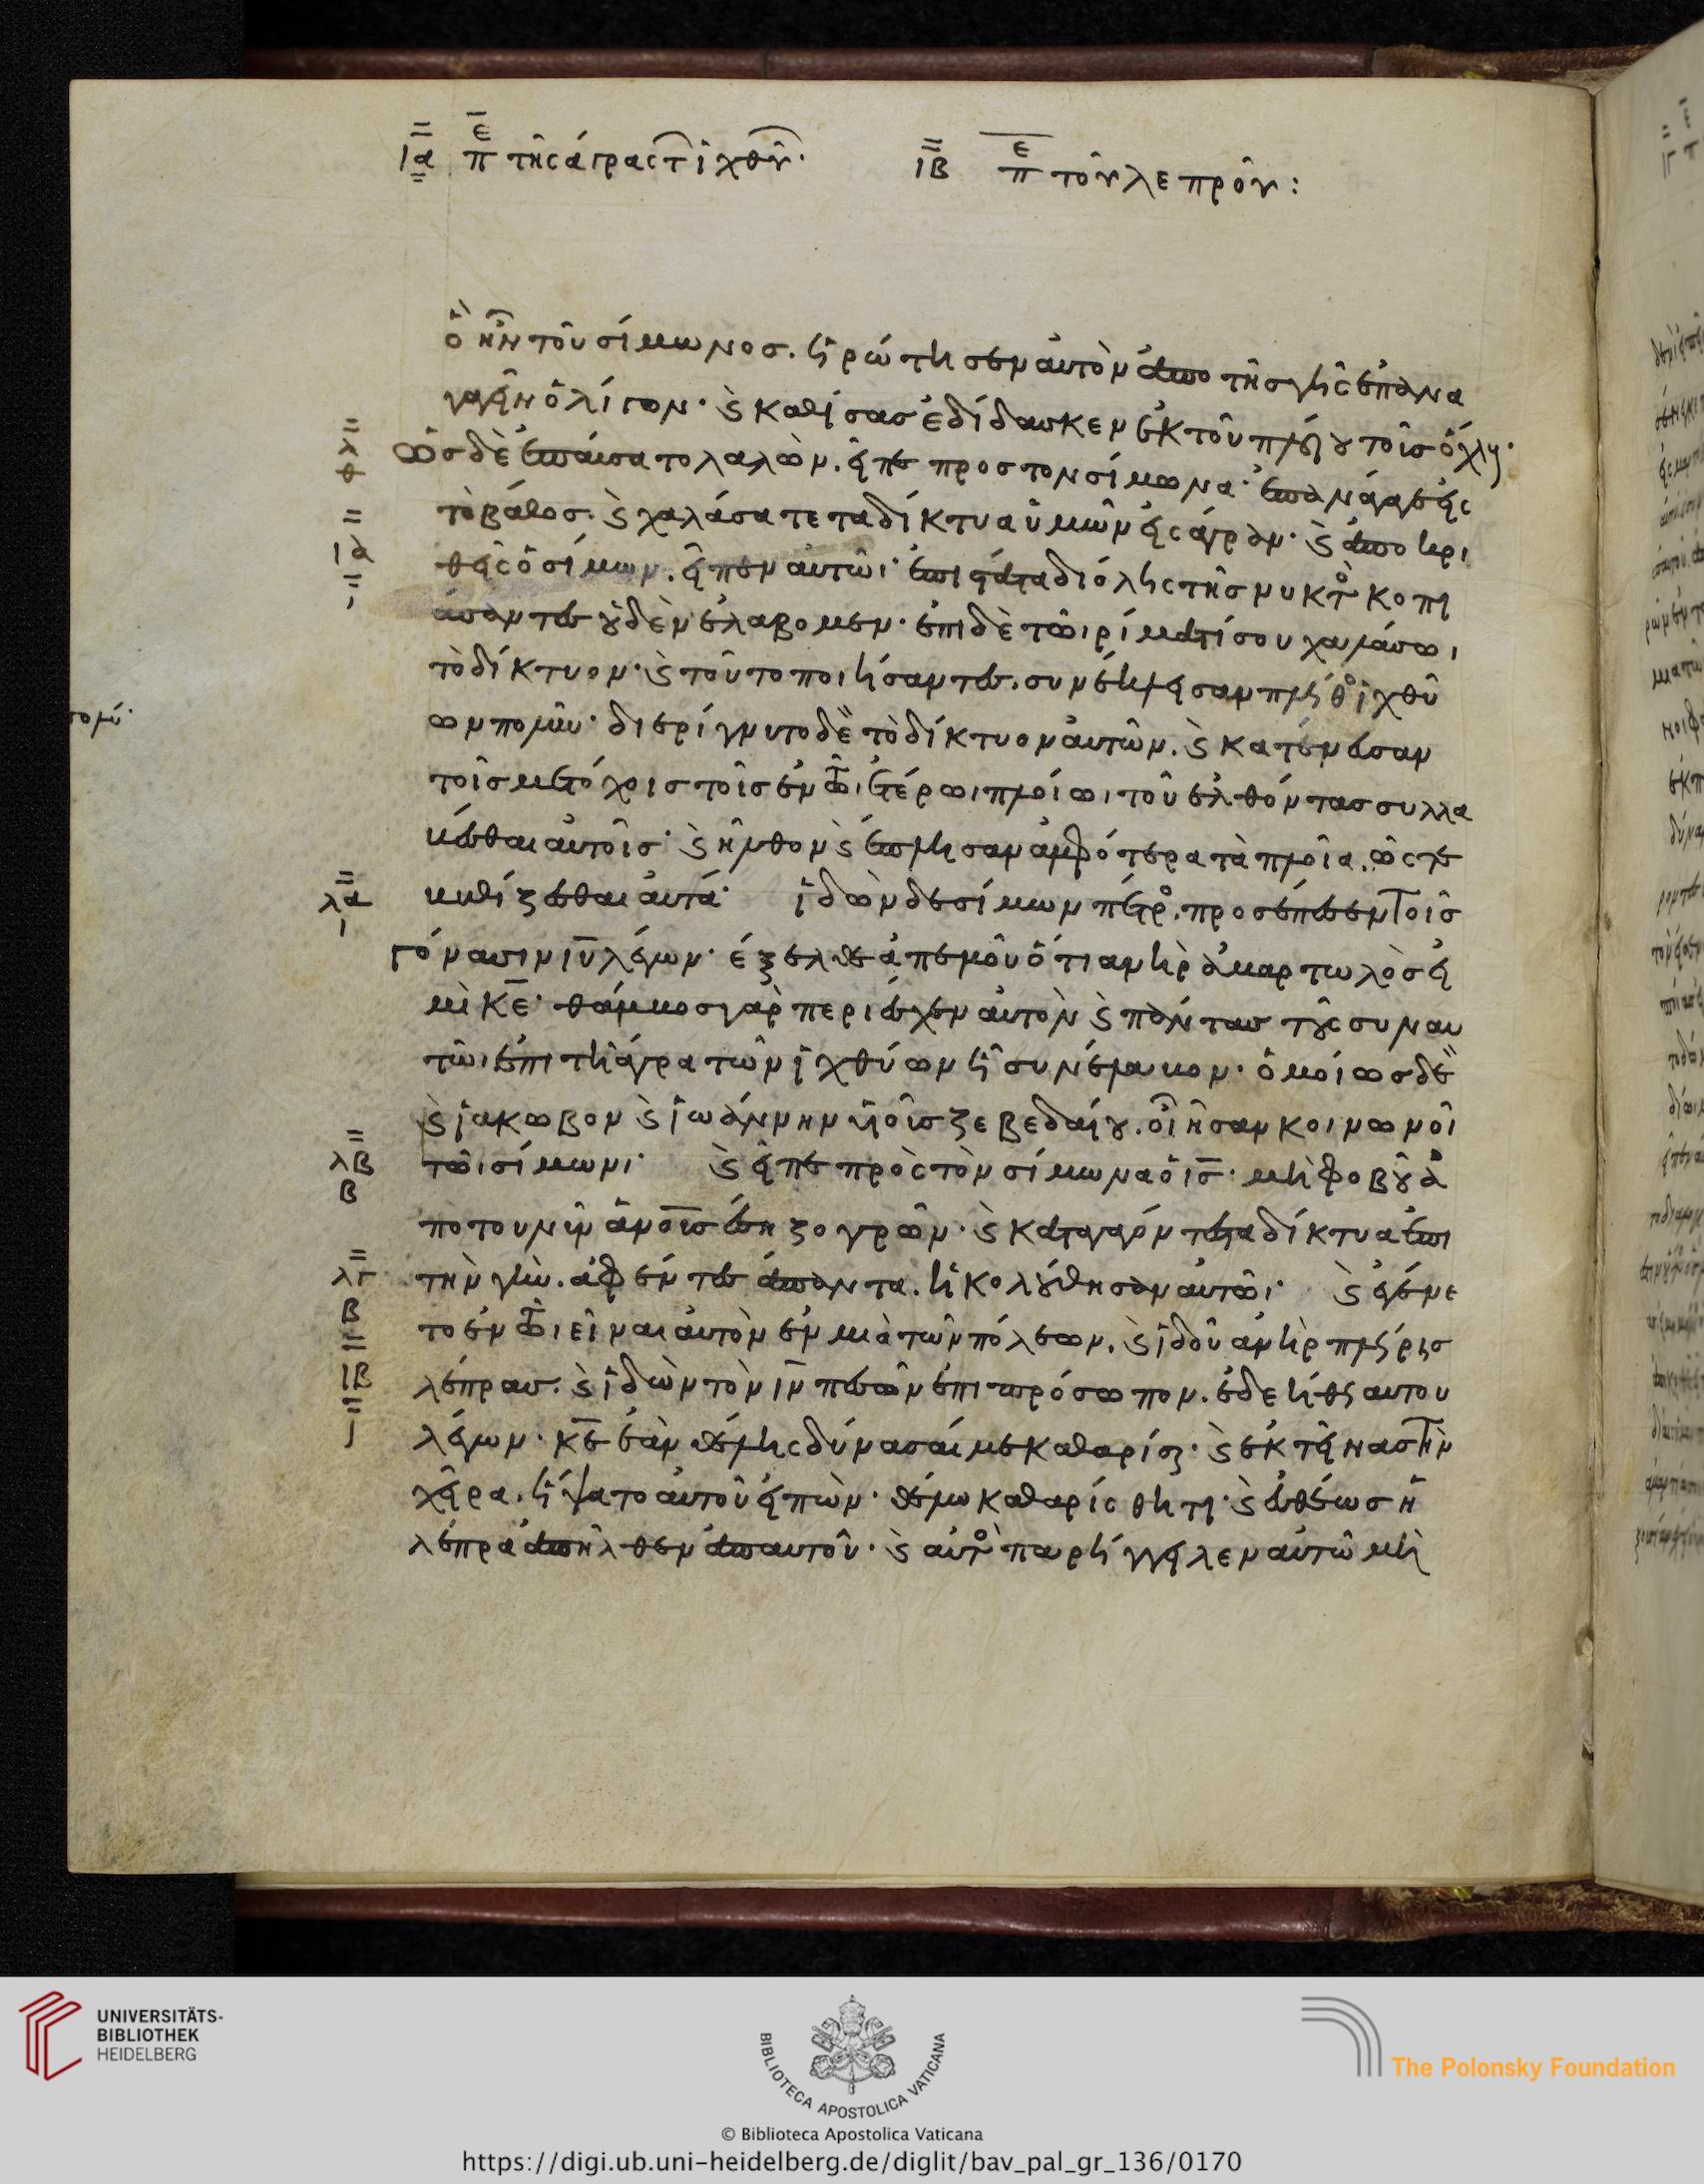 ΙΑ πε τῆς ἄγρας τ ἰχθύ· ΙΒ πε τοῦ λεπροῦ:
ὃ ἦν τοῦ σίμωνοσ. ἠρώτησεν αὐτὸν ἀπο τῆσ γῆς ἐπανα
γαγεῖν ὀλίγον· ϛ καθίσασ ἐδίδασκεν ἐκ τοῦ πλοίου τοῖσ ὄχλοις·
ὡσ δὲ ἐπαύσατο λαλῶν. εἶπε προσ τον σίμωνα· ἐπανάγαγε εἰς
τὸ βάθοσ· ϛ χαλάσατε τα δίκτυα ὑμῶν εἰς ἄγραν· ϛ ἀποκρι
θεὶς ὁ σίμων. εἶπεν αὐτῶι· ἐπιστάτα δι ὅλης τῆσ νυκτὸς κοπι
άσαντεσ οὐδὲν ἐλάβομεν· ἐπι δὲ τῶι ρήματί σου χαλάσωι
τὸ δίκτυον· ϛ τοῦτο ποιήσαντεσ. συνέκλεισαν πλῆθος ἰχθύ
ων πολύν· διερίγνυτο δὲ τὸ δίκτυον αὐτῶν. ϛ κατένευσαν
τοῖσ μετόχοισ τοῖσ ἐν τῶι ἑτέρωι πλοίωι τοῦ ἐλθόντασ συλλα
βέσθαι αὐτοῖσ· ϛ ἦλθον ϛ ἔπλησαν ἀμφότερα τὰ πλοῖα. ὥστε
βυθίζεσθαι αὐτά· ἰδὼν δε σίμων πέτρος. προσέπεσεν τοῖσ
γόνασιν ιυ λέγων· ἔξελθε ἀπ εμοῦ ὅτι ανὴρ ἁμαρτωλόσ εἰ
μὶ κε· θάμβοσ γὰρ περιέσχεν αὐτὸν ϛ πάντασ τοὺς συν αυ
τῶι ἐπι τῆ ἄγρα τῶν ἰχθύων ἧ συνέλαβον· ὁμοίωσ δὲ
ϛ ἰακωβον ϛ ἰωάννην υἱοῖσ ζεβεδαίου. οἳ ἦσαν κοινωνοὶ
τῶι σίμωνι· ϛ εἶπε πρὸς τὸν σίμωνα ὁ ις· μὴ φοβοῦ ἀ
πο του νῦν ἀνοῦσ ἔση ζογρῶν· ϛ καταγαγόντεσ τα δίκτυα ἐπι
τὴν γῆν. ἀφέντεσ ἅπαντα. ἠκολούθησαν αὐτῶι· ϛ ἐγένε
το ἐν τῶι εἶναι αὐτὸν ἐν μιᾶ τῶν πόλεων. ϛ ἰδοῦ ἀνὴρ πλήρησ
λέπρασ. ϛ ἰδὼν τὸν ιν πεσὼν ἐπι πρόσωπον. ἐδεήθη αυτου
λέγων· κε ἐὰν θέλης δύνασαί με καθαρίσαι· ϛ ἐκτείνασ τὴν
χεῖρα. ἥψατο αὐτοῦ εἰπὼν· θέλω καθαρίσθητι· ϛ εὐθέωσ ἡ
λέπρα ἀπῆλθεν ἀπ αυτοῦ· ϛ αὐτὸς παρήγγειλεν αὐτῶ μὴ
λθ
ΙΑ
λα
ι
λβ
β
λγ
β
ΙΒ
UNIVERSITÄTS-
BIBLIOTHEK
HEIDELBERG
BIBLIOTECA APOSTOLICA VATICANA
© Biblioteca Apostolica Vaticana
The Polonsky Foundation
https://digi.ub.uni-heidelberg.de/diglit/bav_pal_gr_136/0170